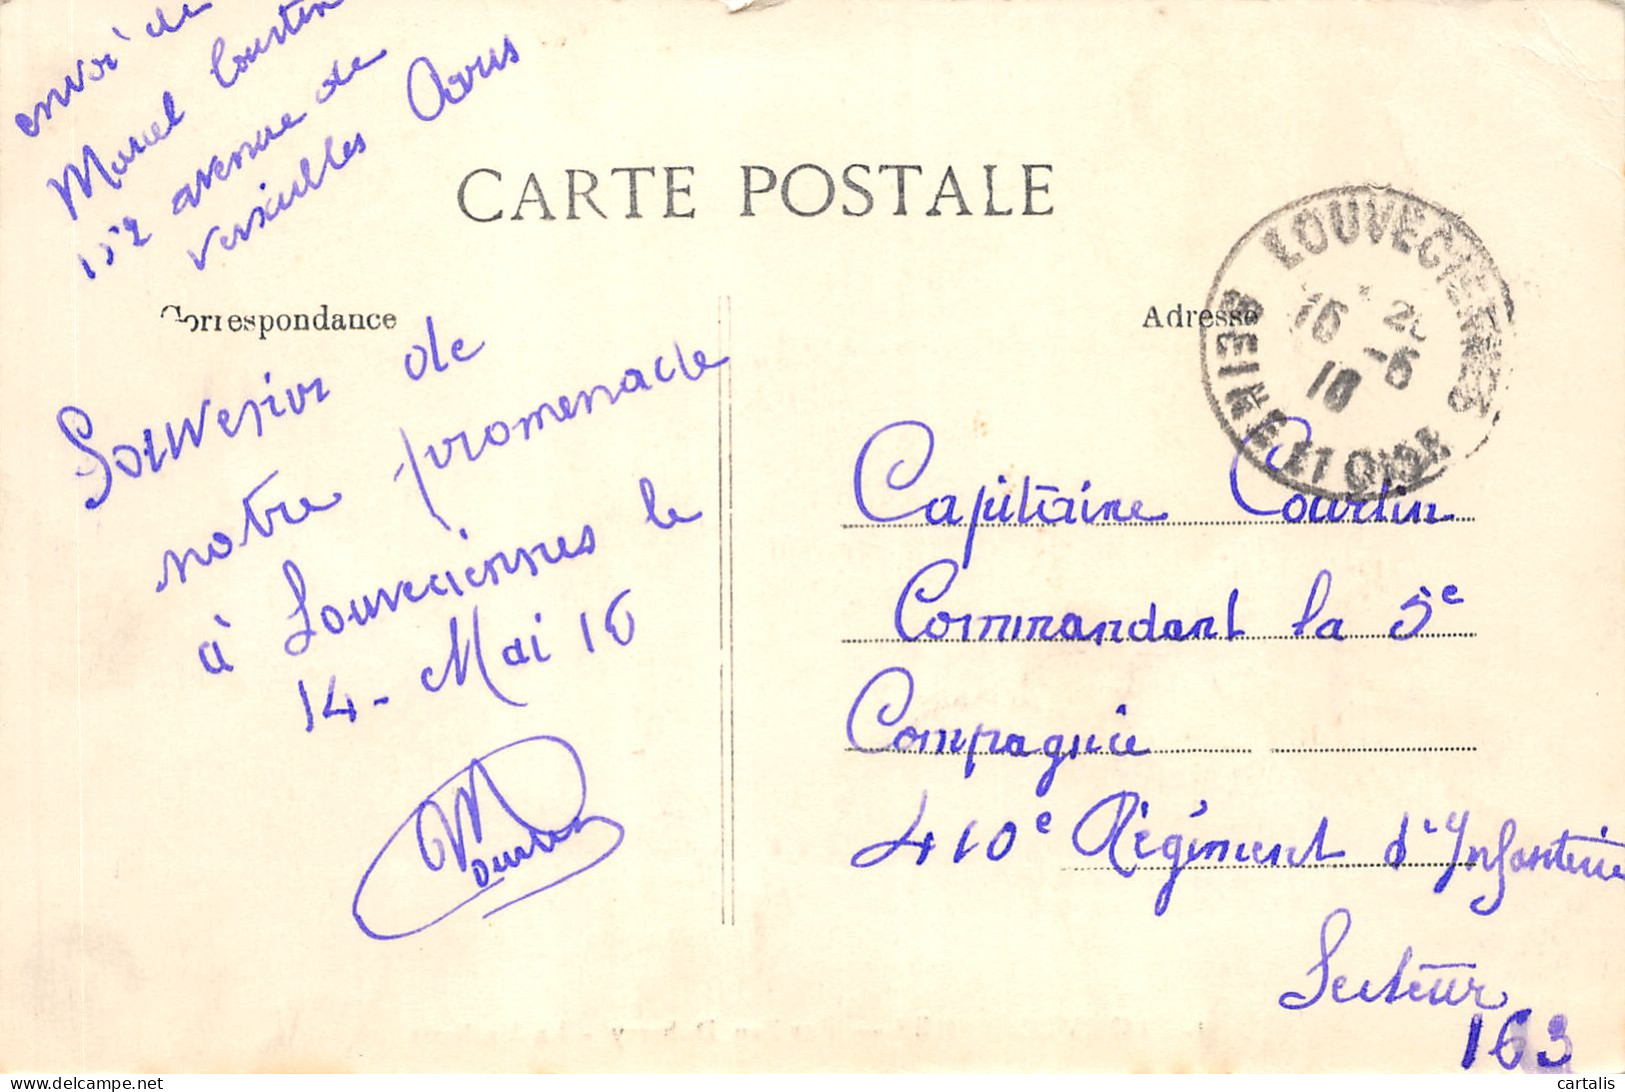 envoi de
Marcel Courtin
152 avenue de
Versailles Paris
CARTE POSTALE
Correspondance
Adresse
LOUVECIENNES
SEINE-ET-OISE
16 -5
16
Souvenir de
notre promenade
à Louveciennes le
14 - Mai 16
Capitaine Courtin
Commandant la 5e
Compagnie
410e Régiment d'Infanterie
Secteur
163
cartalis